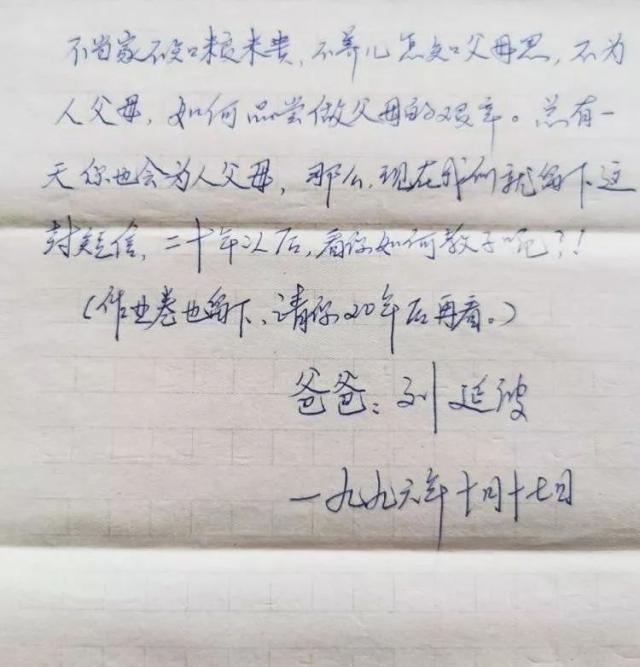 不当家不知米粮贵,不养儿怎知父母恩,不为
人父母,如何品尝做父母的艰辛。总有一
天你也会为人父母,那么,现在我们就留下这
封短信,二十年以后,看你如何教子呢?!
(作业卷也留下、请你20年后再看。)
爸爸:刘延波
一九九六年十月十七日